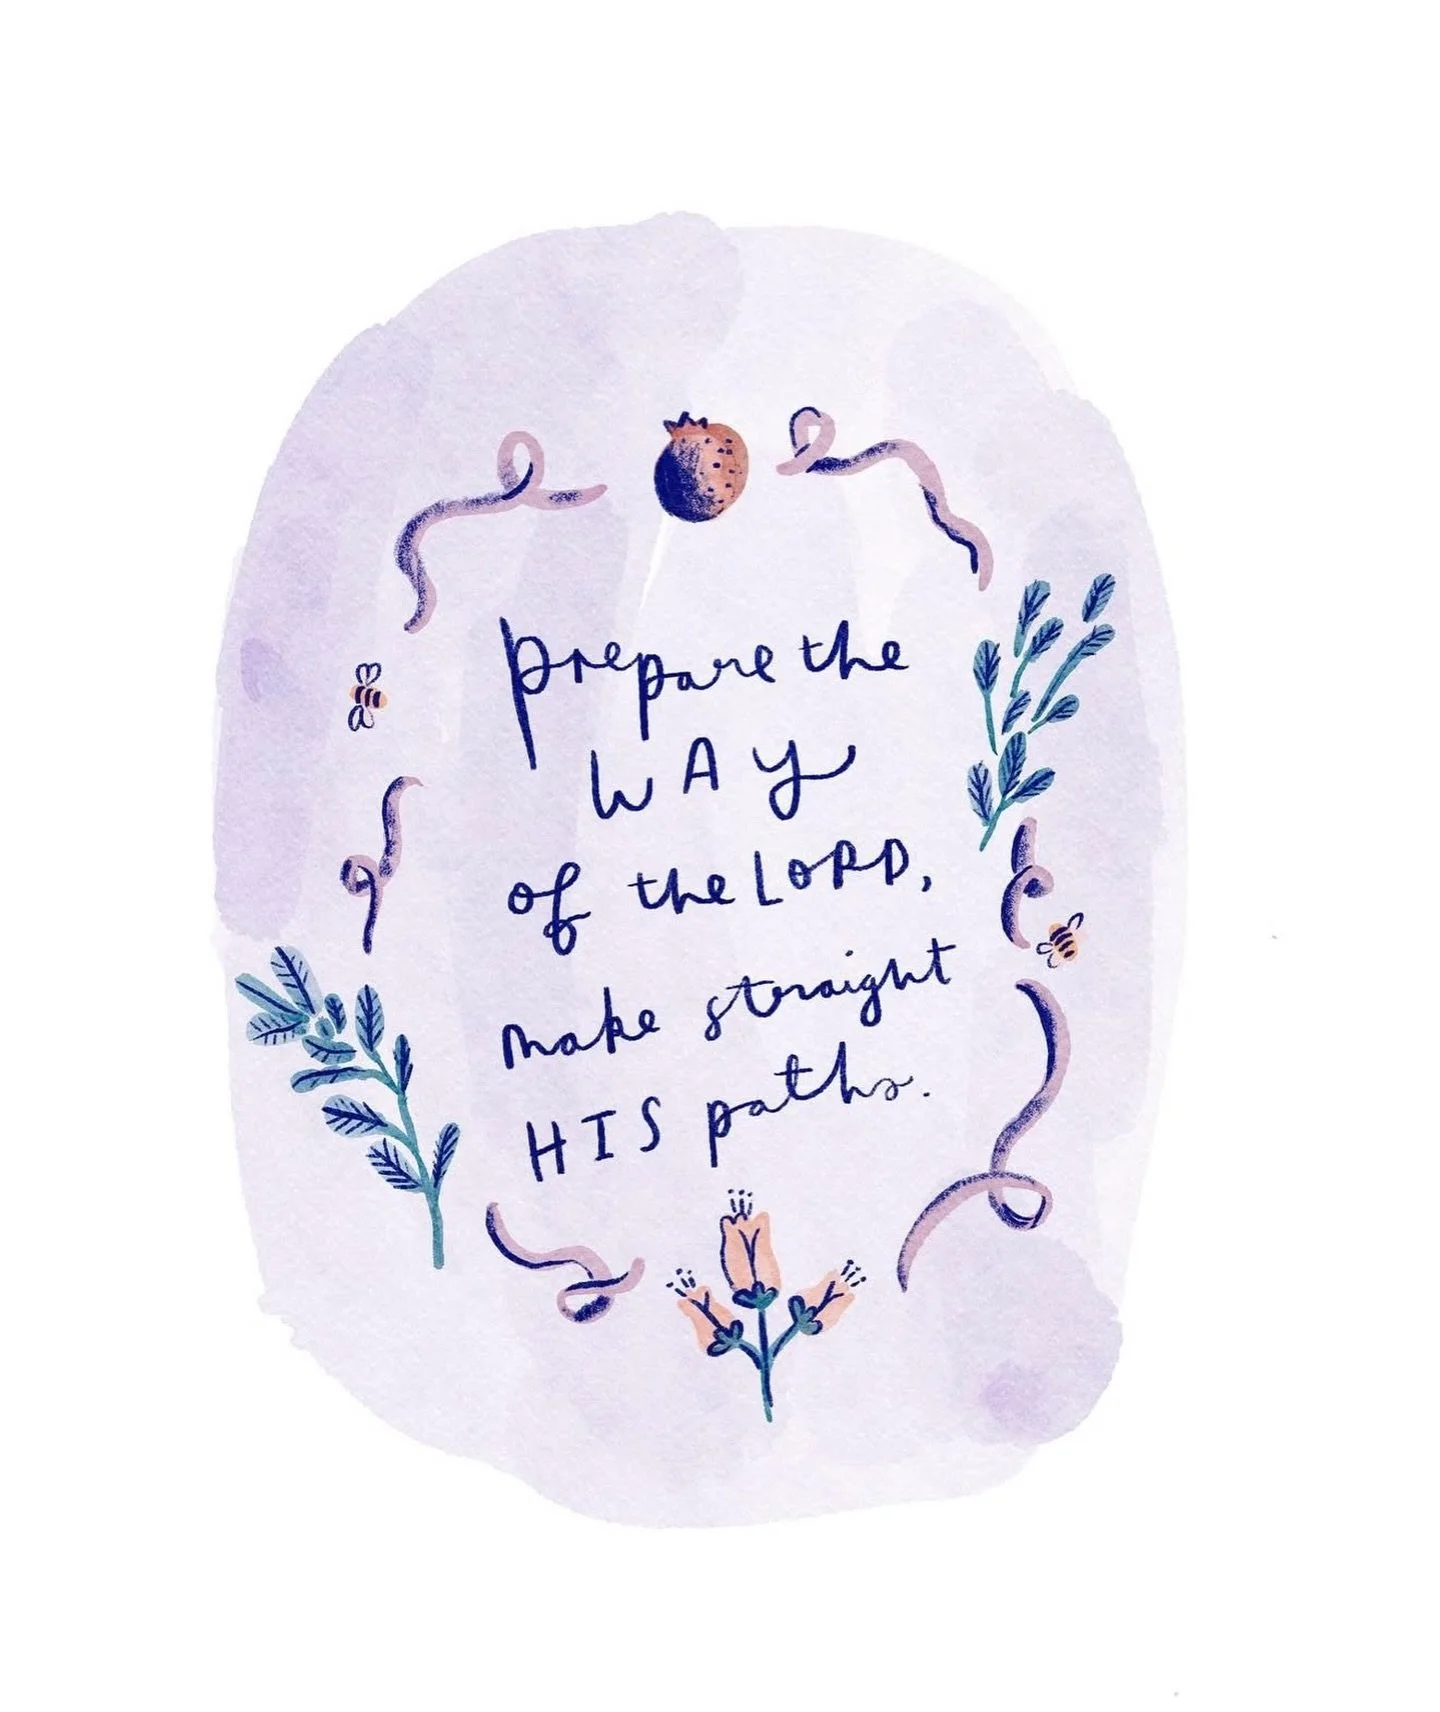 prepare the
WAY
of the LORD,
make straight
HIS paths.